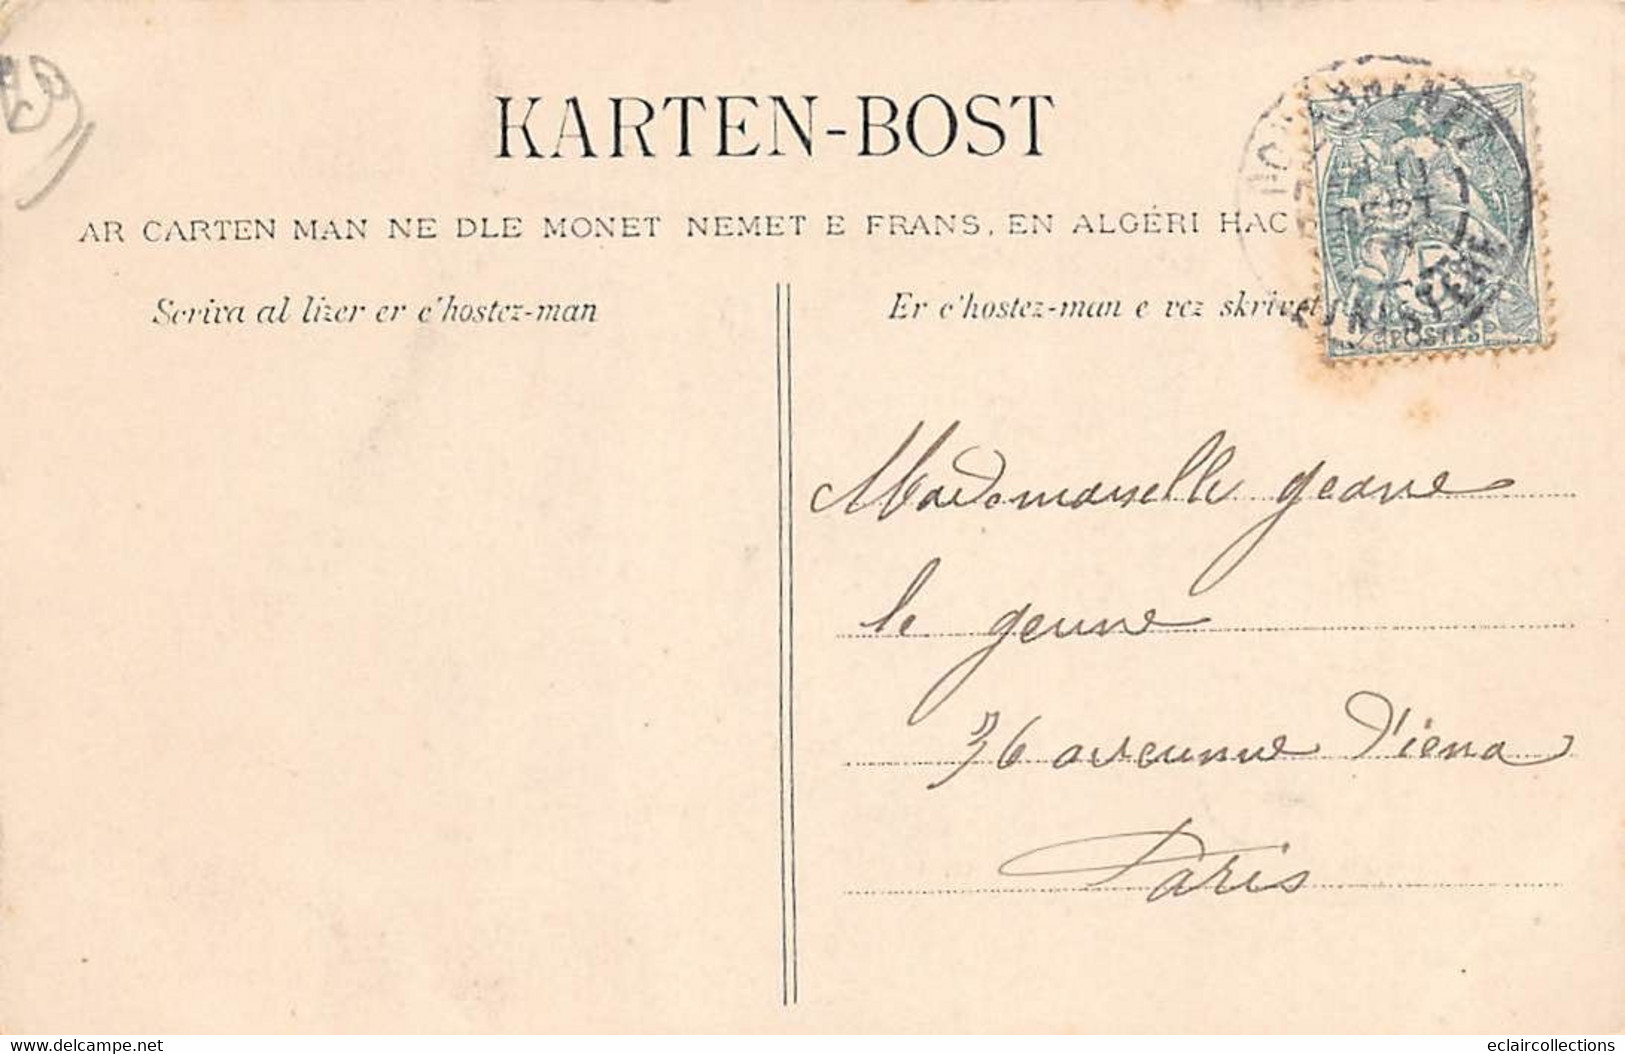 KARTEN-BOST
AR CARTEN MAN NE DLE MONET NEMET E FRANS, EN ALGÉRI HAC
Scriva al lizer er c'hostez-man
Er c'hostez-man e vez skrivet
FINISTÈRE
POSTES
Mademoiselle geane
le geune
36 aveunue d'iena
Paris
delcampe.net
eclaircollections